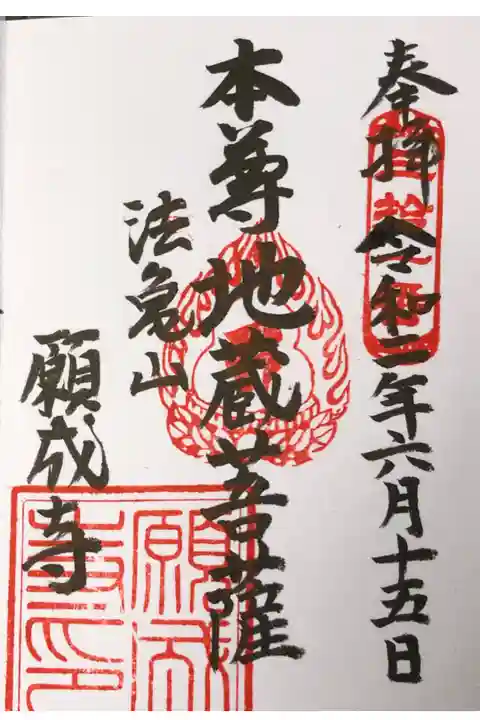 奉拝 令和二年六月十五日
本尊地蔵菩薩
法亀山
願成寺